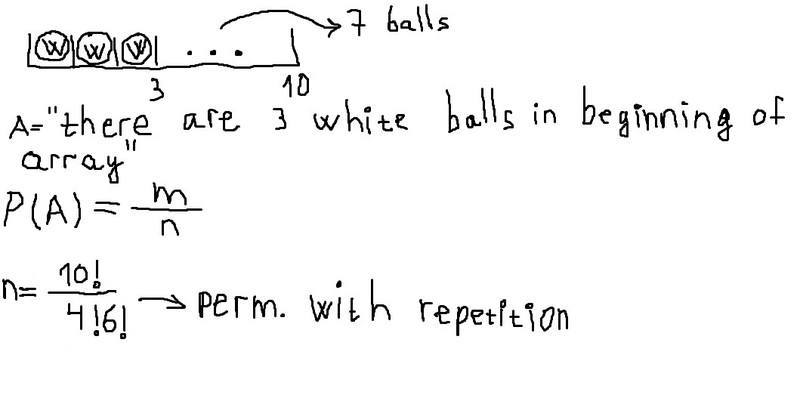 7 balls
W W W ...
3 10
A="there are 3 white balls in beginning of
array"
P(A) = m/n
n= 10!/4!6! → perm. with repetition